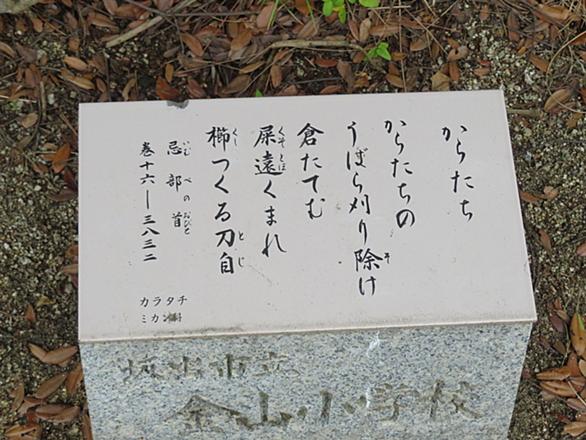 からたち
からたちの
うばら刈り除け
倉たてむ
屎遠くまれ
櫛つくる刀自
忌部首
巻十六―三八三二
カラタチ
ミカン科
坂出市立
金山小学校